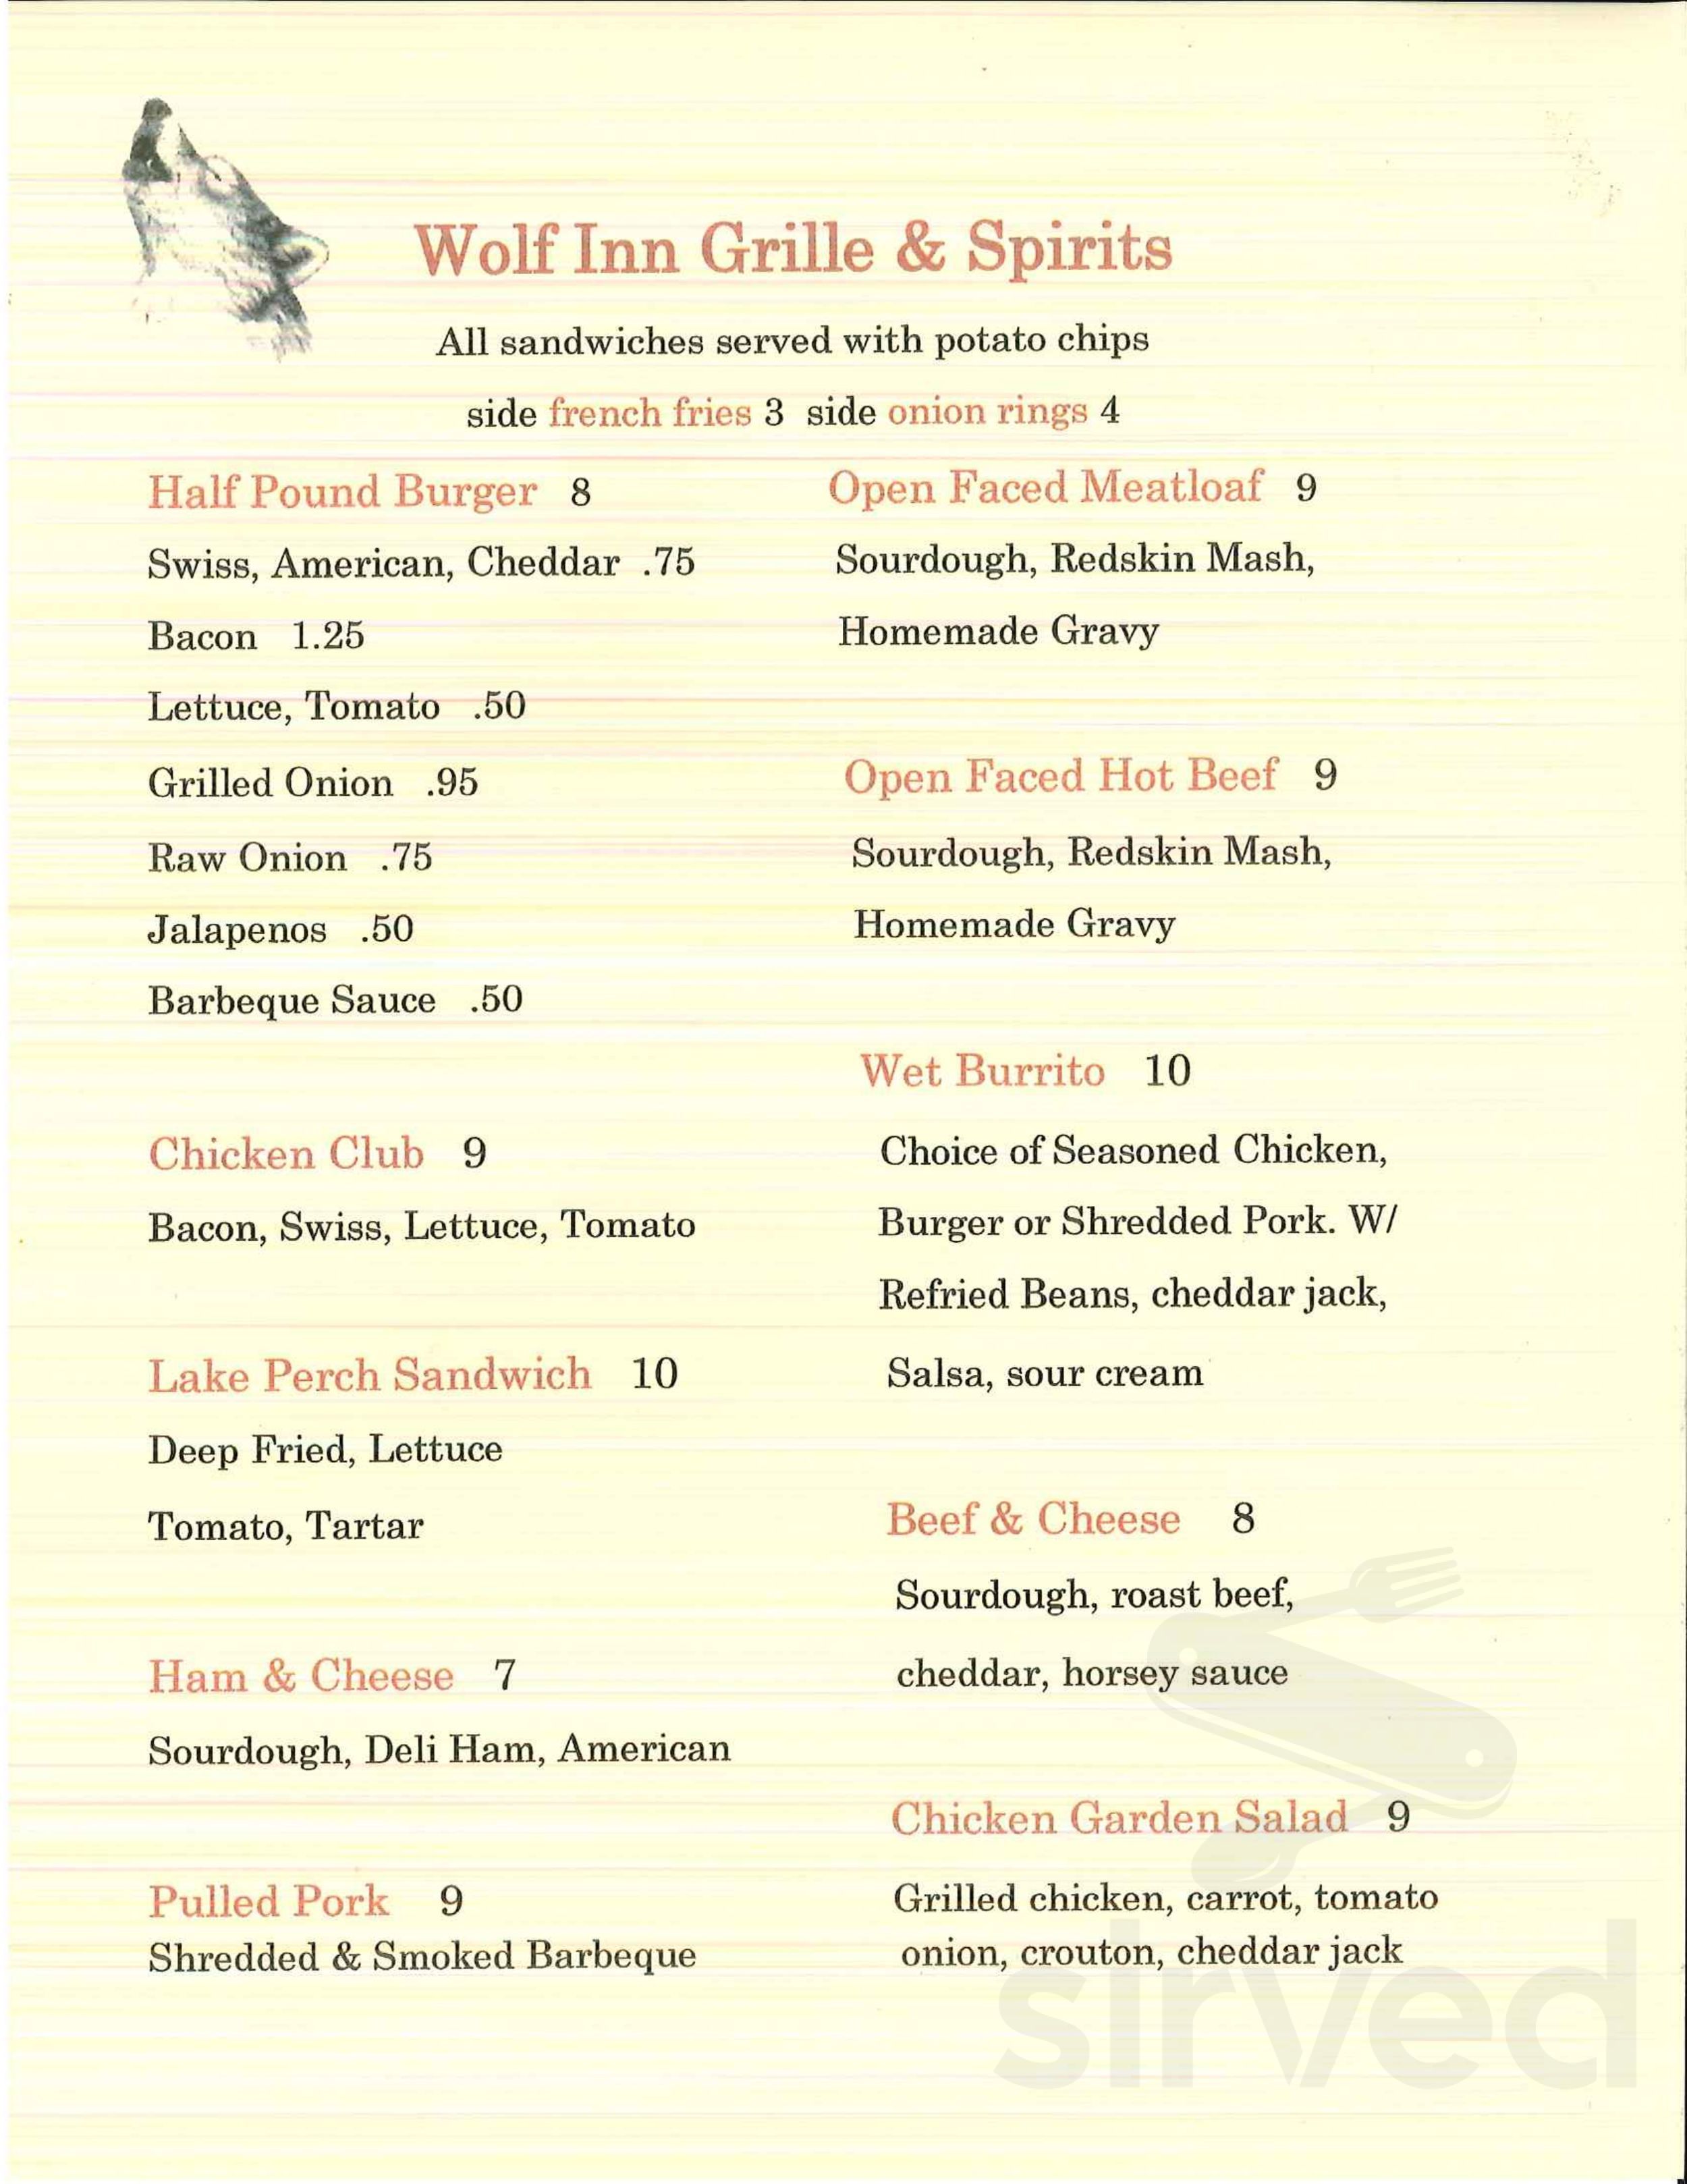 Wolf Inn Grille & Spirits
All sandwiches served with potato chips
side french fries 3 side onion rings 4
Half Pound Burger 8
Swiss, American, Cheddar .75
Bacon 1.25
Lettuce, Tomato .50
Grilled Onion .95
Raw Onion .75
Jalapenos .50
Barbeque Sauce .50
Chicken Club 9
Bacon, Swiss, Lettuce, Tomato
Lake Perch Sandwich 10
Deep Fried, Lettuce
Tomato, Tartar
Ham & Cheese 7
Sourdough, Deli Ham, American
Pulled Pork 9
Shredded & Smoked Barbeque
Open Faced Meatloaf 9
Sourdough, Redskin Mash,
Homemade Gravy
Open Faced Hot Beef 9
Sourdough, Redskin Mash,
Homemade Gravy
Wet Burrito 10
Choice of Seasoned Chicken,
Burger or Shredded Pork. W/
Refried Beans, cheddar jack,
Salsa, sour cream
Beef & Cheese 8
Sourdough, roast beef,
cheddar, horsey sauce
Chicken Garden Salad 9
Grilled chicken, carrot, tomato
onion, crouton, cheddar jack
sirved